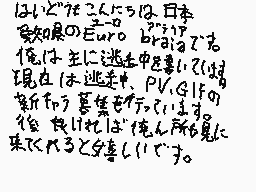 はいどうもこんにちは 日本
愛知県のEuro ユーロ braiaです。ブライア
俺は主に逃走中を書いています
現在は逃走中、PV、GIFの
新キャラ募集も行っています。
後 良ければ俺ん所も見に
来てくれると嬉しいです。